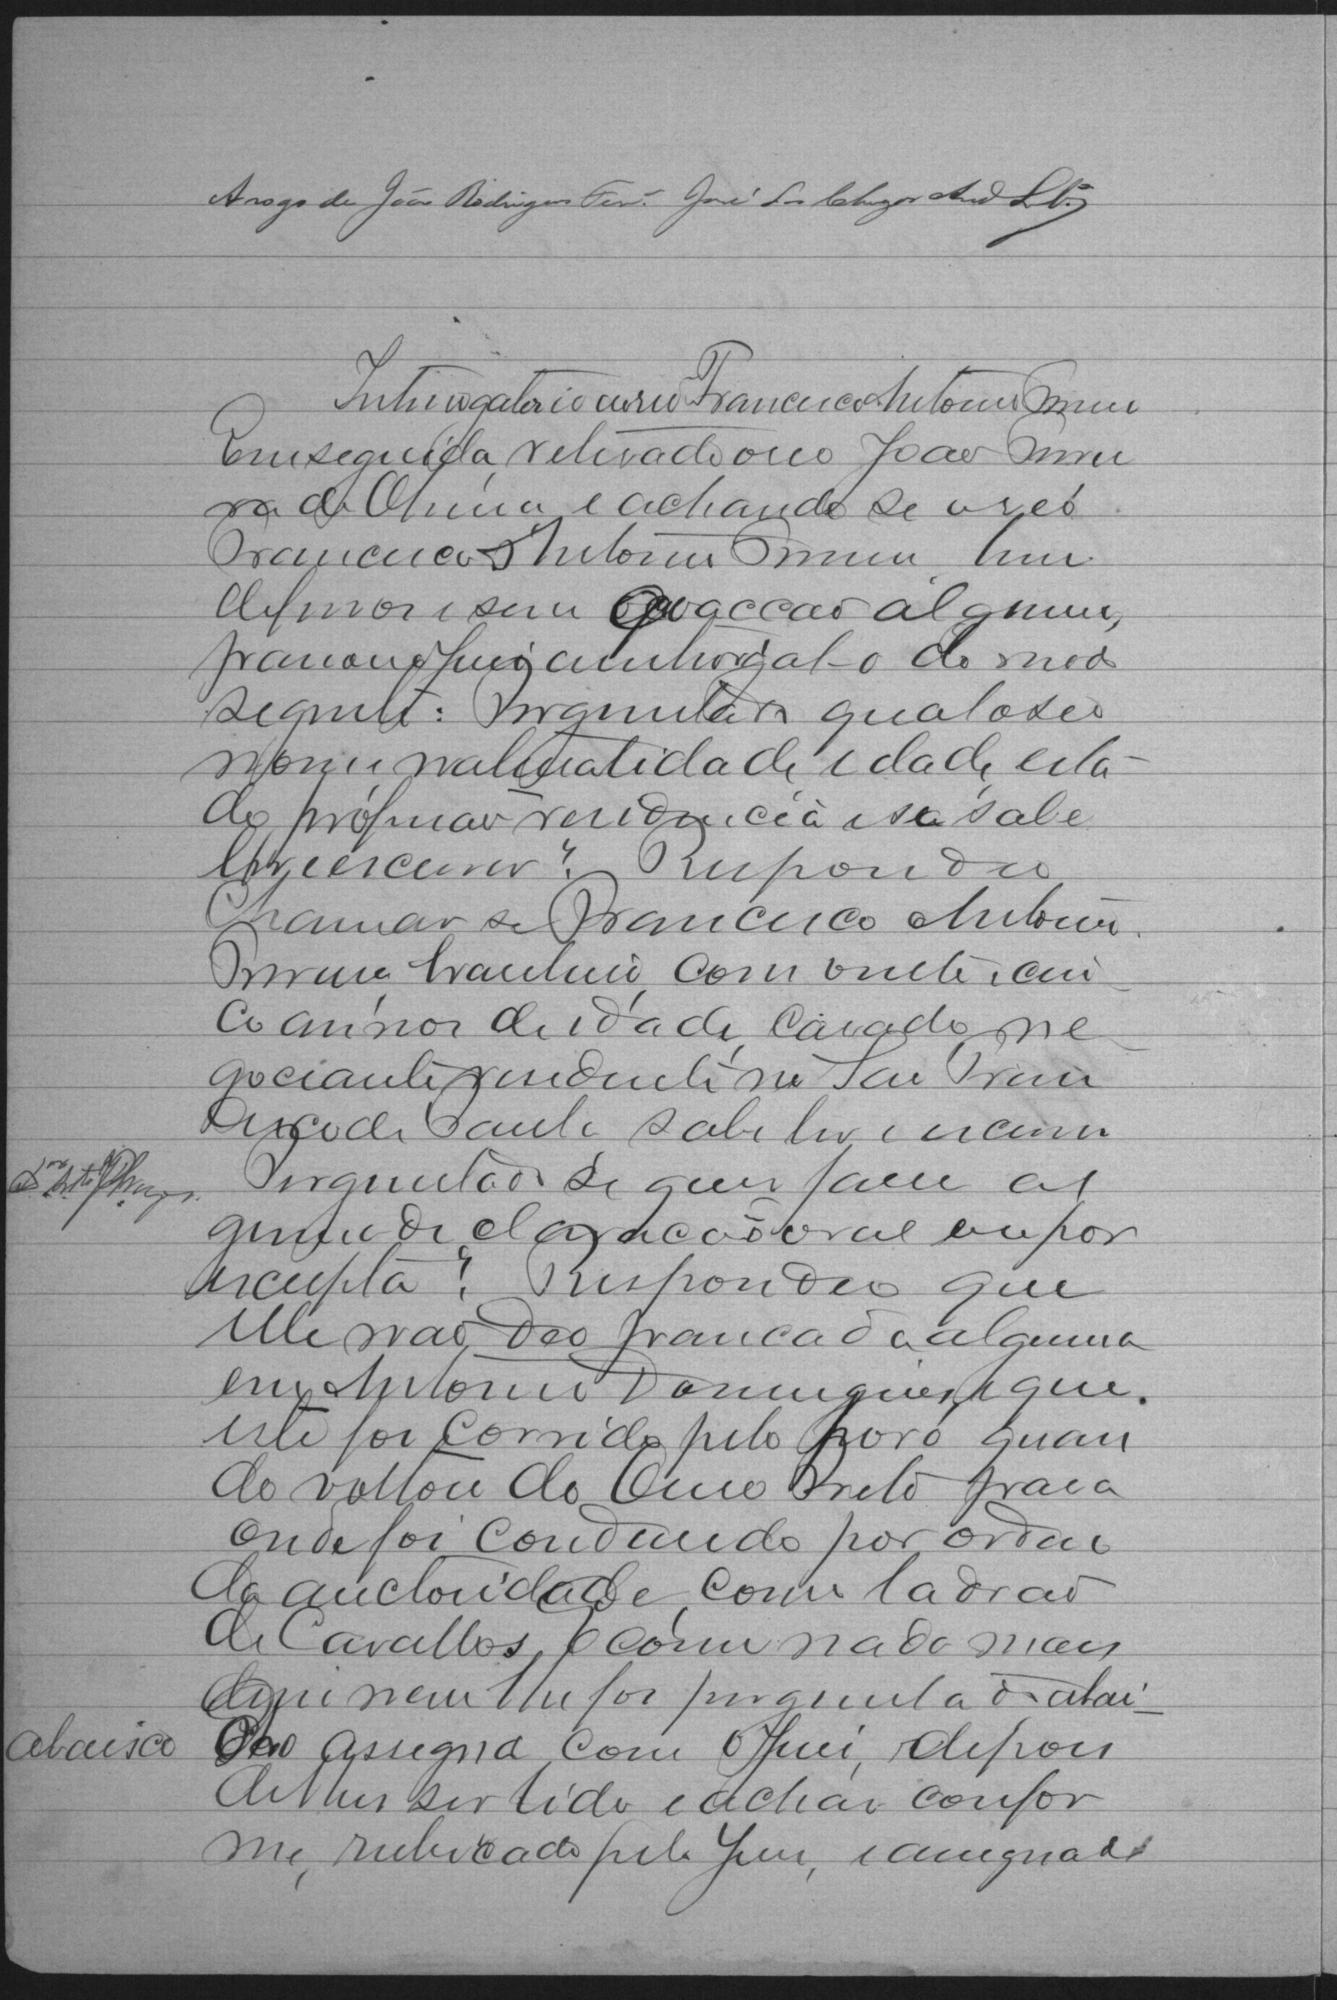 A rogo de João Rodrigues Ferr.ª José
Interrogatorio ao reo Francisco Antonio
Em seguida, retirado o reo João
e achando se o reo
Francisco Antonio livre
de ferros e sem coacção alguma,
passou o Juiz a interrogal-o do modo
seguinte: Perguntado qual o seo
nome naturalidade, idade, esta-
do, profissão residencia e se sabe
ler e escrever? Respondeo
Chamar se Francisco Antonio
brasileiro, com vinte e cin
co annos de idade, casado, ne
gociante, residente em São Fran
cisco de Paula sabe ler e escrever
Perguntado se quer fazer al
guma declaração oral ou por
escripta? Respondeo que
elle não deo pancada alguma
em Antonio Domingues, e que
este foi corrido pelo povo quan
do voltou do Ouro Preto para
onde foi condusido por ordem
da auctoridade, como ladrão
de Cavallos, e como nada mais
disse nem lhe foi perguntado abai-
abaisco
assigna com o Juiz, depois
de lhes ser lido e achar confor
me, rubricado pelo Juiz, e assignado